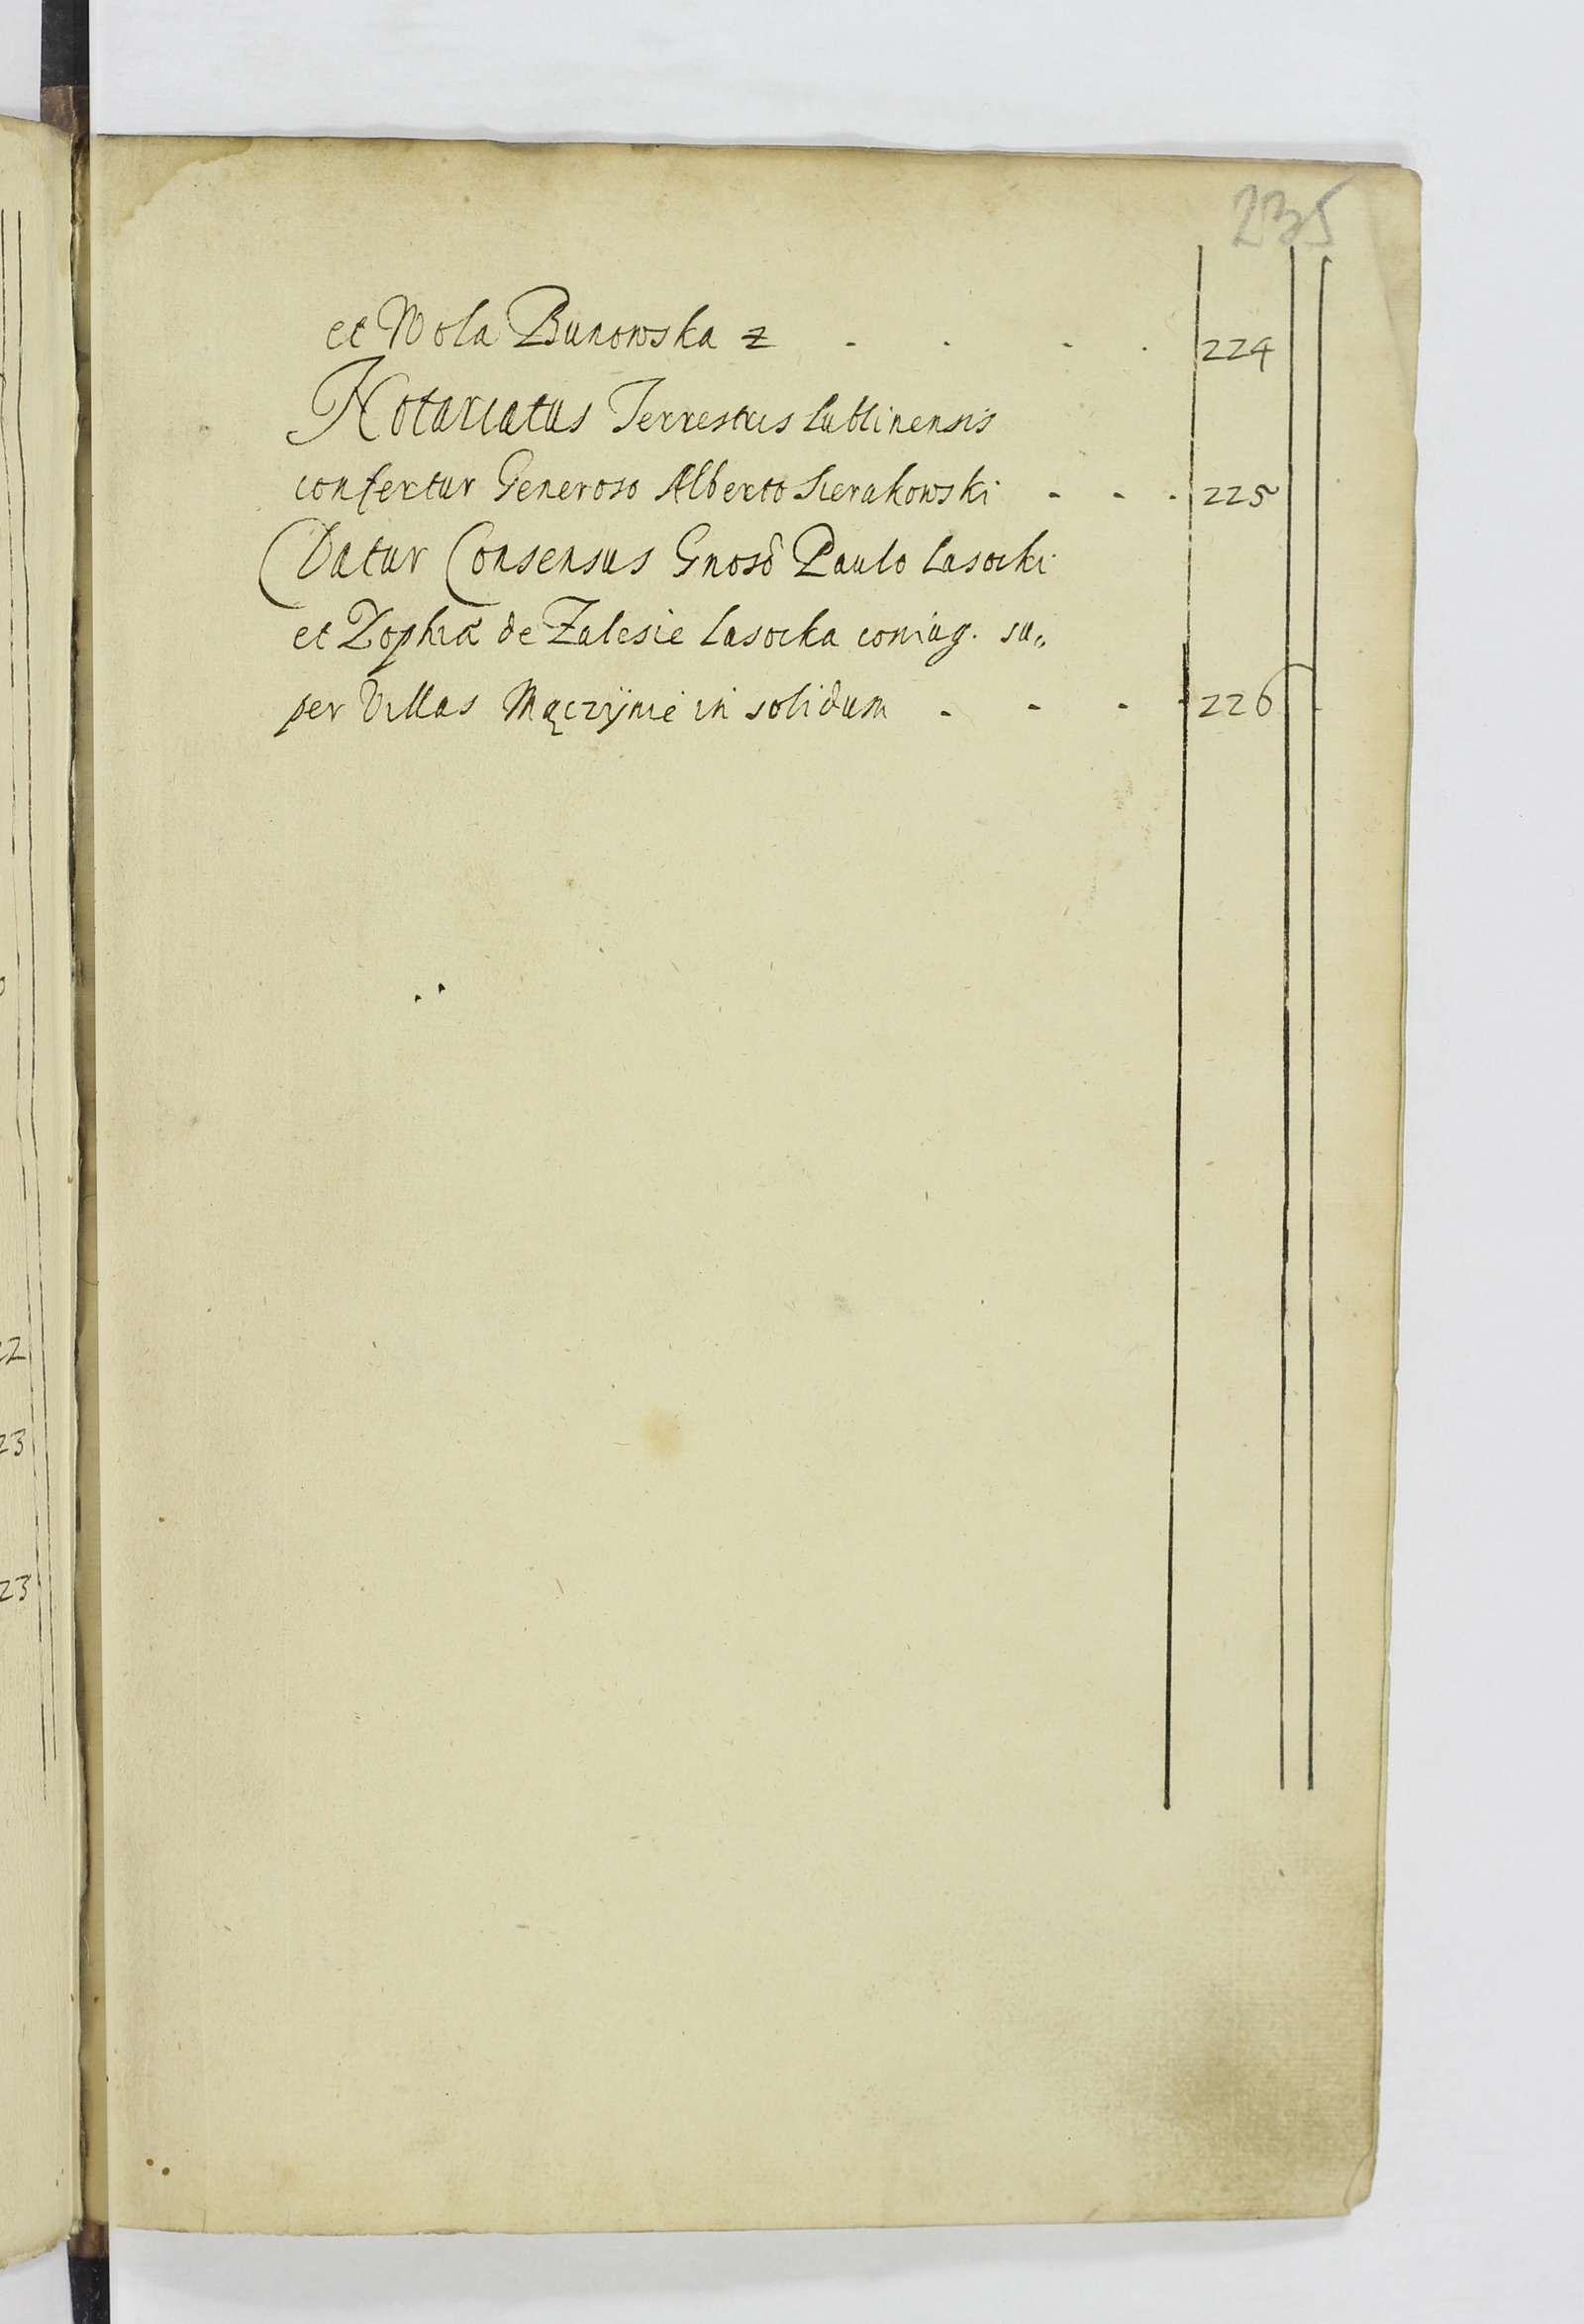 235
et Wola Bunowska z . . . . 224
Notariatus Terrestris Lublinensis
confertur Generoso Alberto Sierakowski - - - 225
Datur Consensus Gnoso Paulo Lasocki
et Zophia de Zalesie Lasocka coniug. su„
per Villas Mączÿnie in solidum - - - - 226
22
23
23